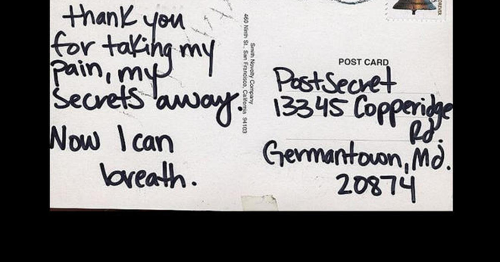 thank you
for taking my
pain, my
secrets away.
Now I can
breath.
Smith Novelty Company
460 Ninth St., San Francisco, California 94103
POST CARD
PostSecret
13345 Copperidge
Rd.
Germantown, Md.
20874